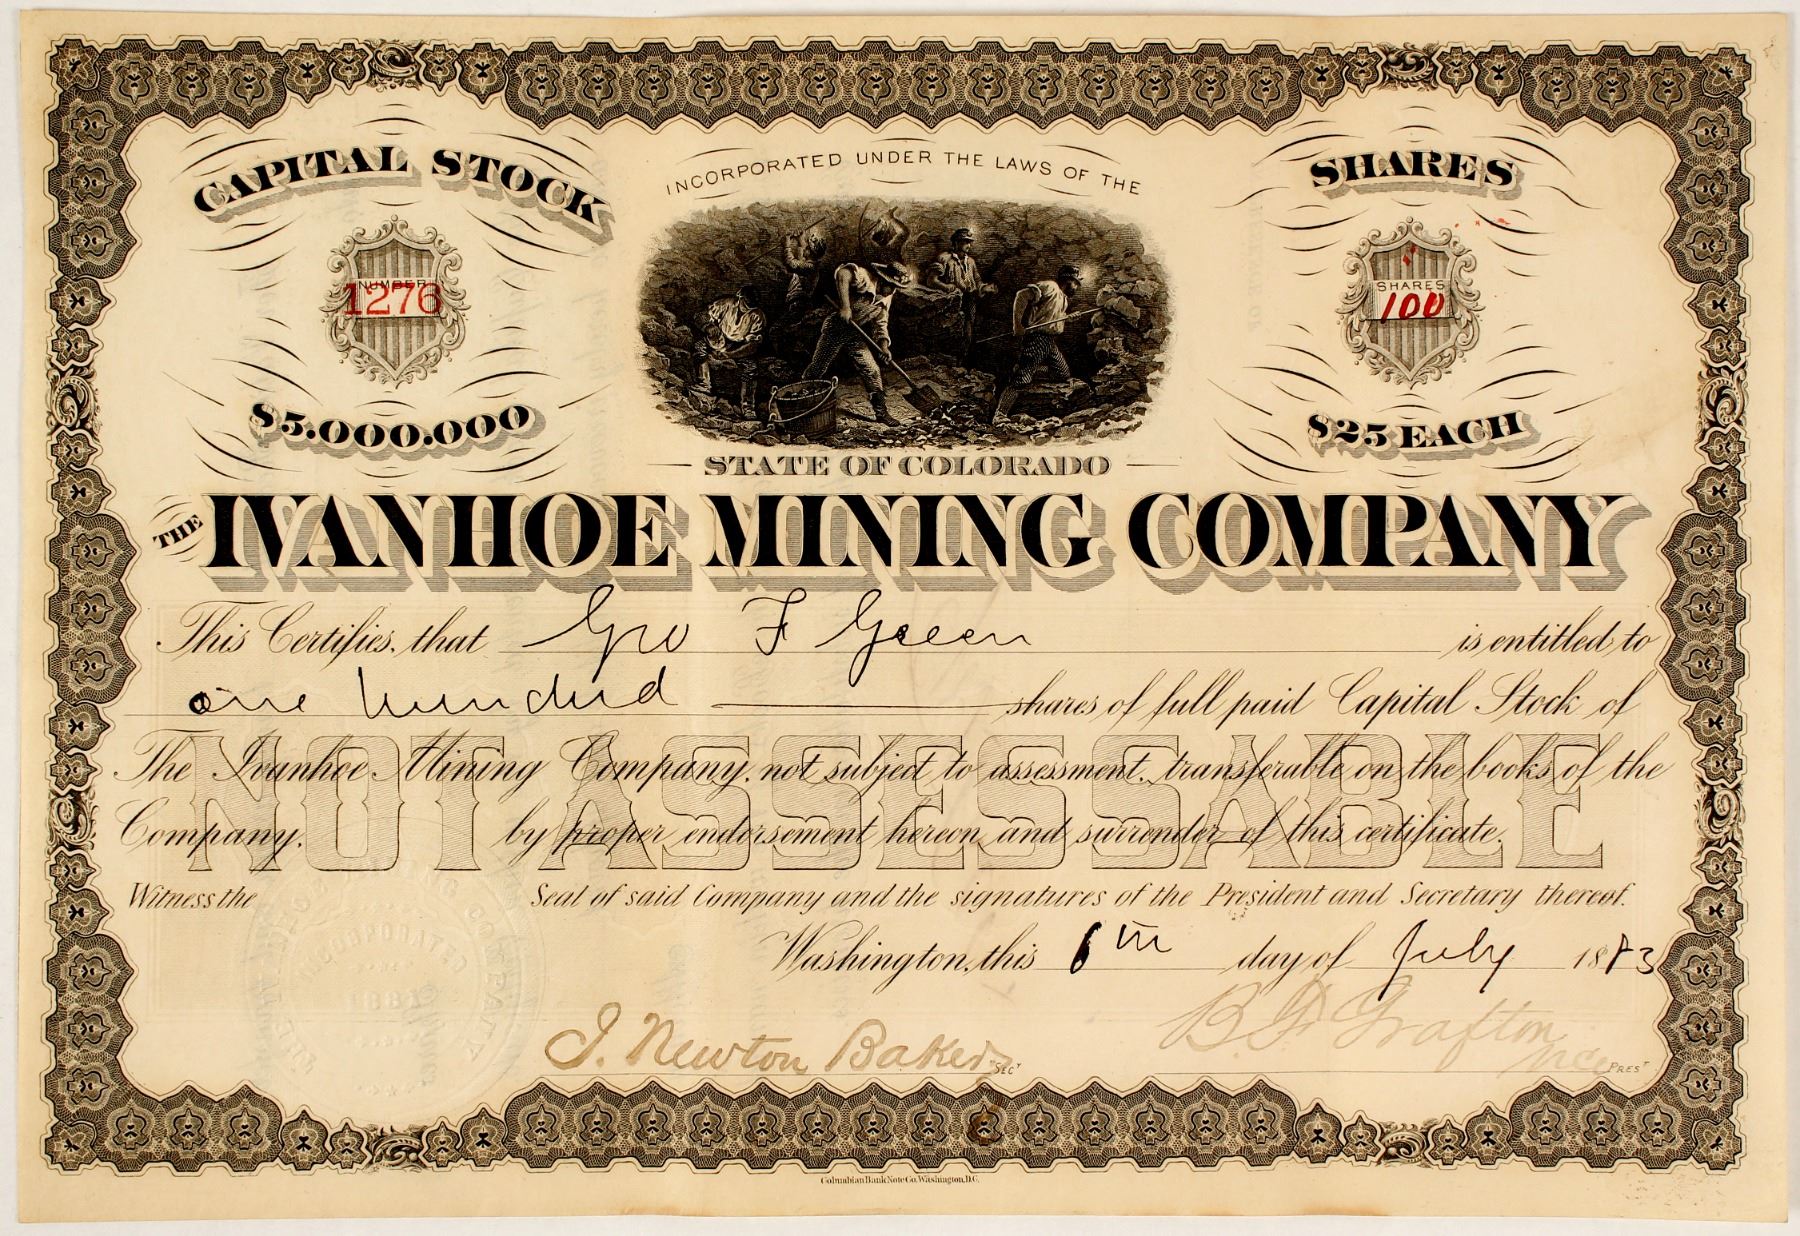 CAPITAL STOCK
NUMBER
1276
$5.000.000
INCORPORATED UNDER THE LAWS OF THE
STATE OF COLORADO
SHARES
SHARES
100
$25 EACH
THE IVANHOE MINING COMPANY
This Certifies, that Geo F Green is entitled to
one hundred shares of full paid Capital Stock of
The Ivanhoe Mining Company, not subject to assessment, transferable on the books of the
Company. by proper endorsement hereon and surrender of this certificate.
NOT ASSESSABLE
Witness the Seal of said Company and the signatures of the President and Secretary thereof.
Washington, this 6th day of July 1883
J. Newton Baker SECY
B. F. Grafton Vice PREST
INCORPORATED
1881
Columbian Bank Note Co. Washington, D.C.